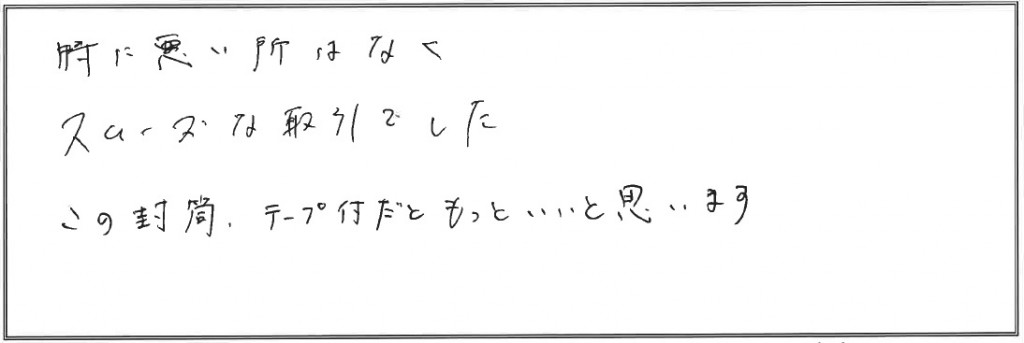 特に悪い所はなく
スムーズな取引でした
この封筒、テープ付だともっといいと思います